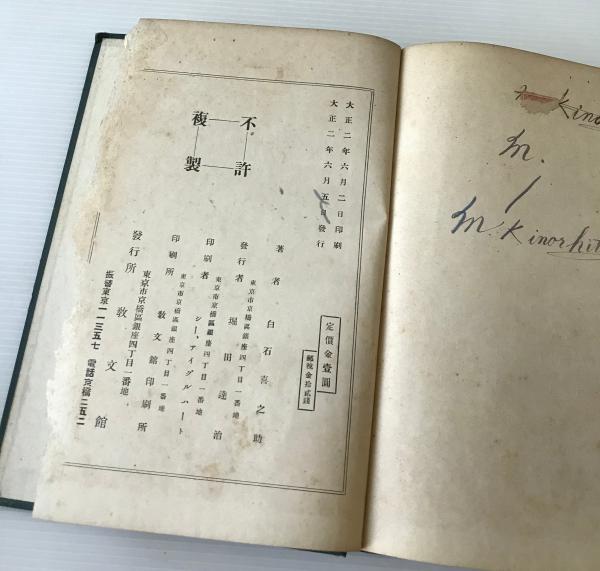 大正二年六月二日印刷
大正二年六月五日發行
不許
複製
定價金壹圓
郵稅金拾貳錢
著者 白石喜之助
東京市京橋區銀座四丁目一番地
發行者 堀田達治
東京市京橋區銀座四丁目一番地
印刷者 シー、アイグルハート
東京市京橋區銀座四丁目一番地
印刷所 敎文館印刷所
東京市京橋區銀座四丁目一番地
發行所 敎文館
振替東京一一三五七 電話京橋二五二
Kino
M.
M. Kinoshit